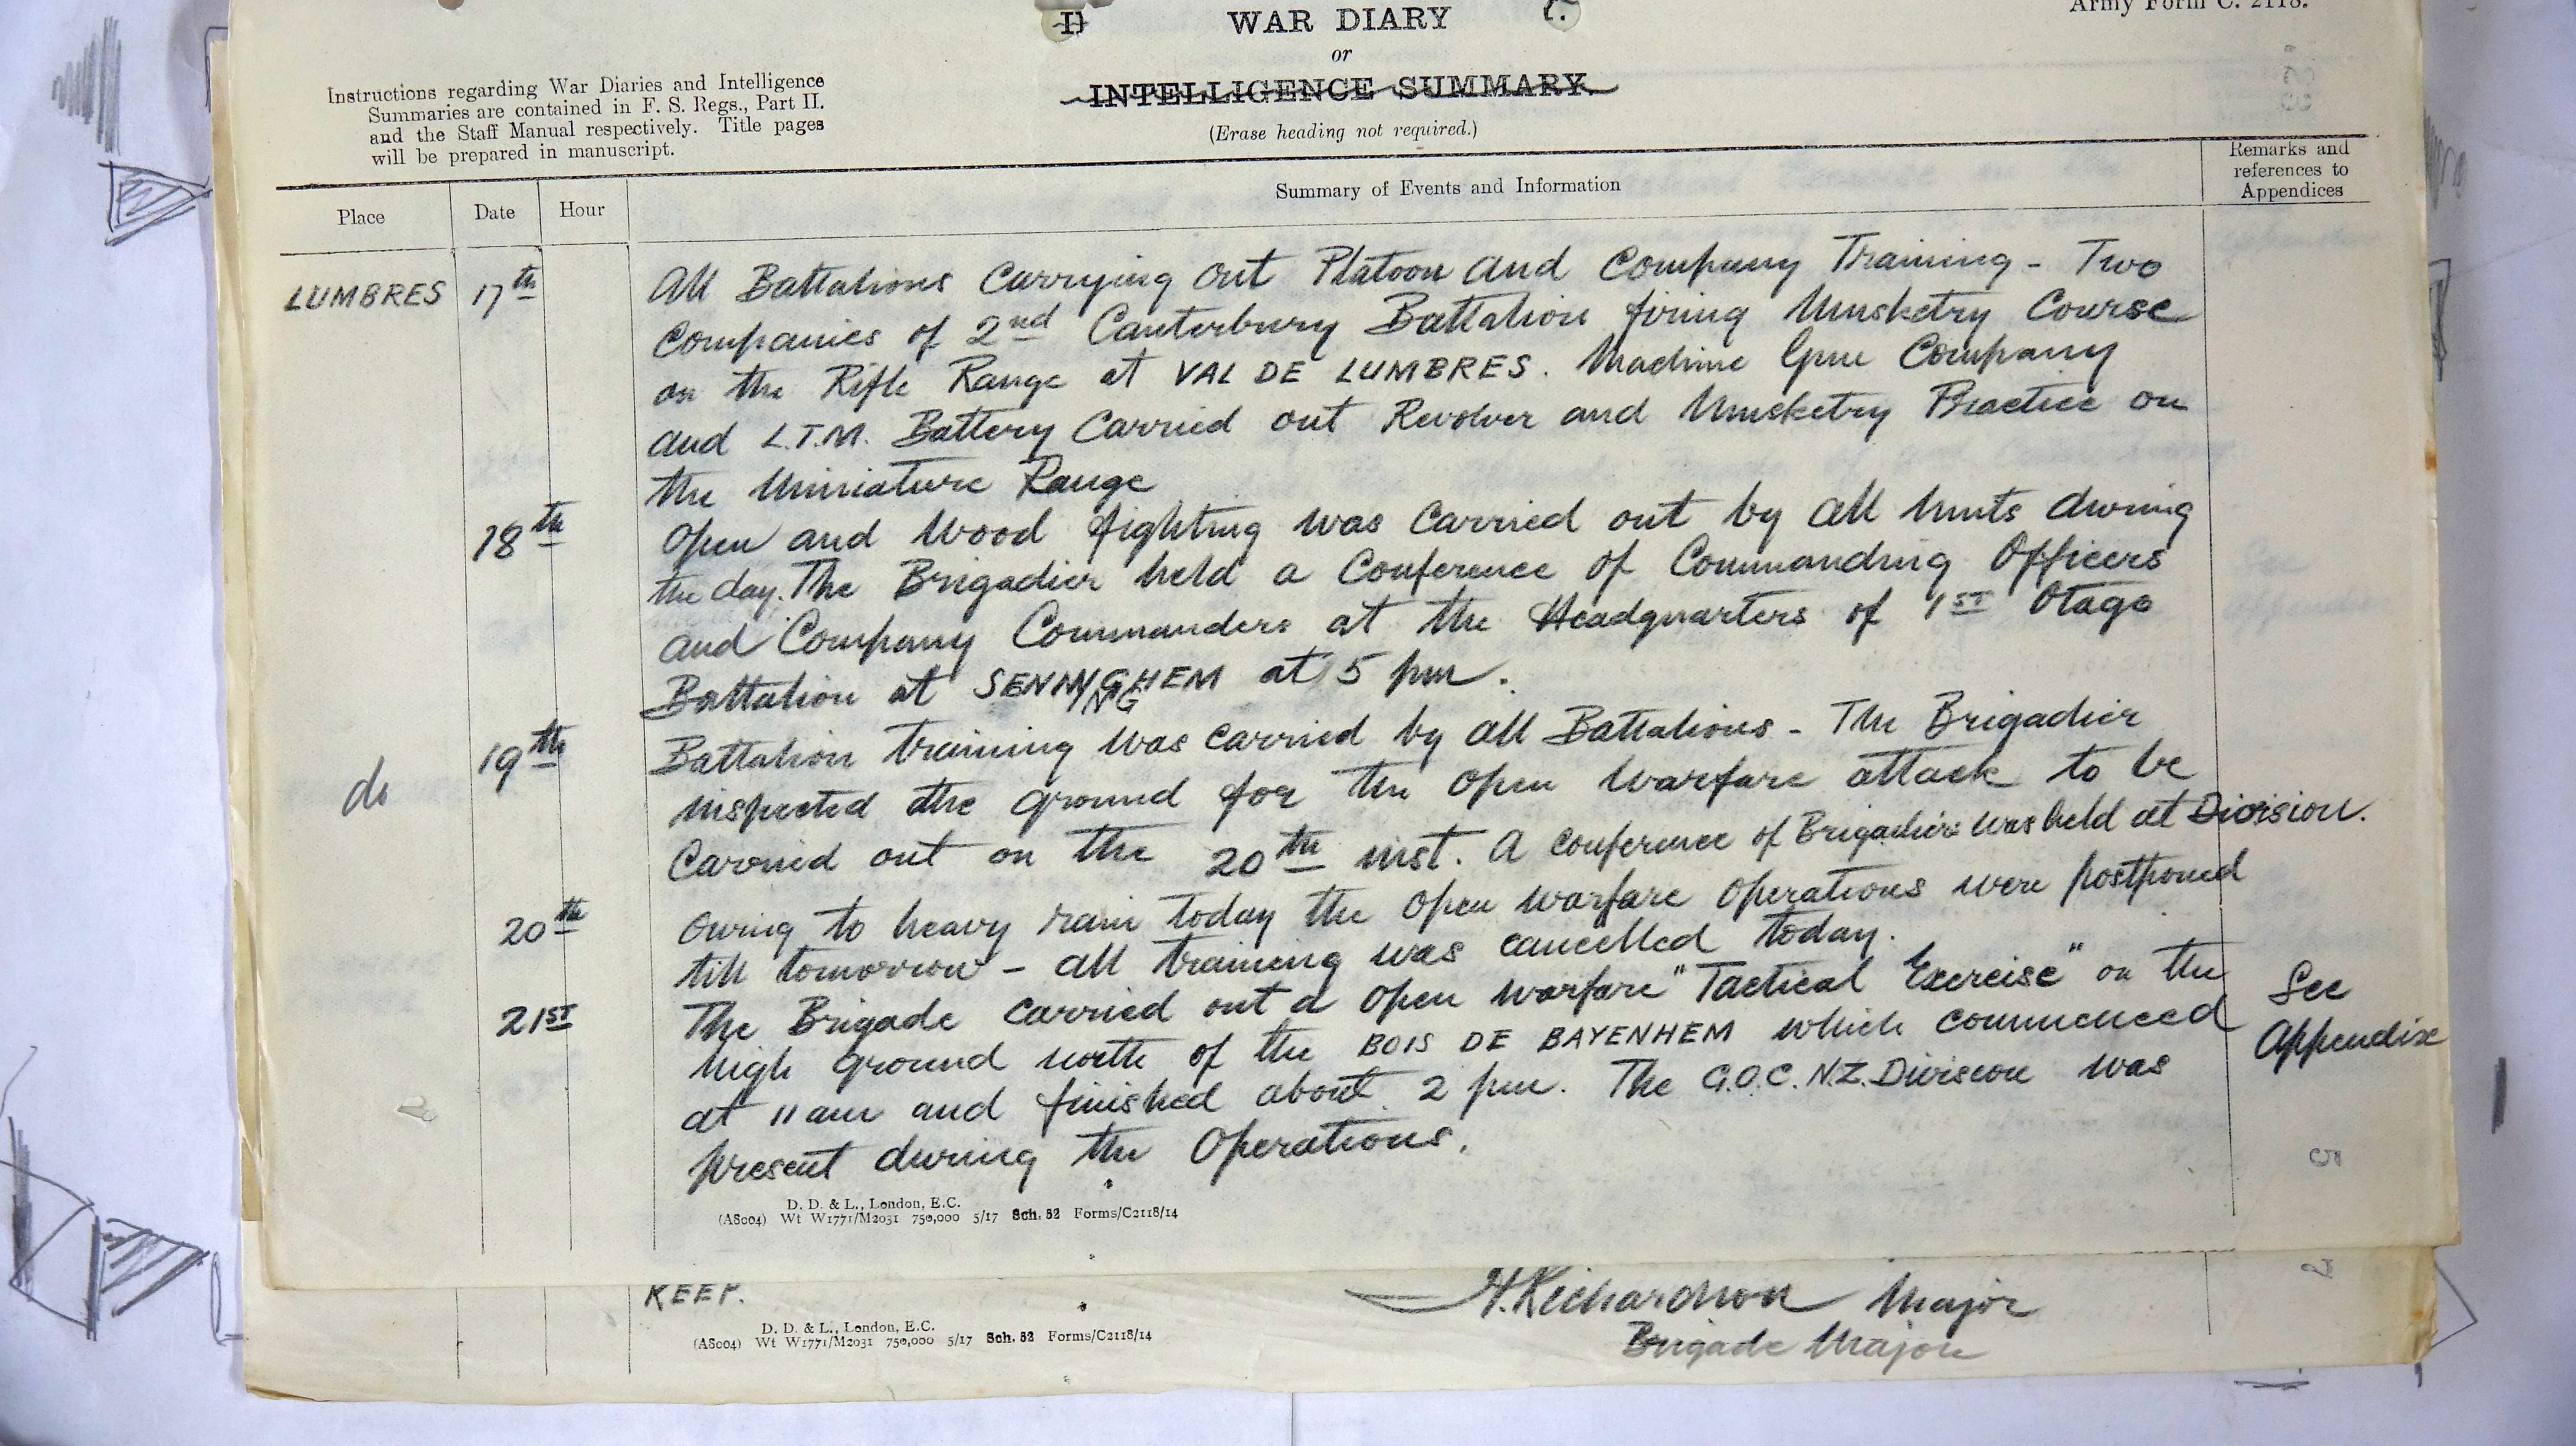 Army Form C. 2118.
WAR DIARY
or
INTELLIGENCE SUMMARY.
(Erase heading not required.)
Instructions regarding War Diaries and Intelligence
Summaries are contained in F. S. Regs., Part II.
and the Staff Manual respectively. Title pages
will be prepared in manuscript.
Place
Date
Hour
Summary of Events and Information
Remarks and
references to
Appendices
LUMBRES 17th All Battalions Carrying out Platoon and Company Training - Two
Companies of 2nd Canterbury Battalion firing Musketry Course
on the Rifle Range at VAL DE LUMBRES. Machine Gun Company
and L.T.M. Battery Carried out Revolver and Musketry Practice on
the Miniature Range
18th Open and Wood fighting was Carried out by all Units during
the day. The Brigadier held a Conference of Commanding Officers
and Company Commanders at the Headquarters of 1ST Otago
Battalion at SENINGHEM at 5 pm.
19th Battalion training was carried by all Battalions - The Brigadier
do inspected the ground for the open warfare attack to be
Carried out on the 20th inst. A Conference of Brigadiers was held at Division.
20th Owing to heavy rain today the open warfare operations were postponed
till tomorrow - all training was cancelled today.
21ST The Brigade carried out a open warfare "Tactical Exercise" on the See
high ground north of the BOIS DE BAYENHEM which commenced Appendix
at 11 am and finished about 2 pm. The G.O.C. N.Z. Division was
present during the Operations.
D. D. & L., London, E.C.
(A8004) Wt W1771/M2031 750,000 5/17 Sch. 52 Forms/C2118/14
KEEP.
H. Richardson Major
Brigade Major
D. D. & L., London, E.C.
(A8004) Wt W1771/M2031 750,000 5/17 Sch. 52 Forms/C2118/14